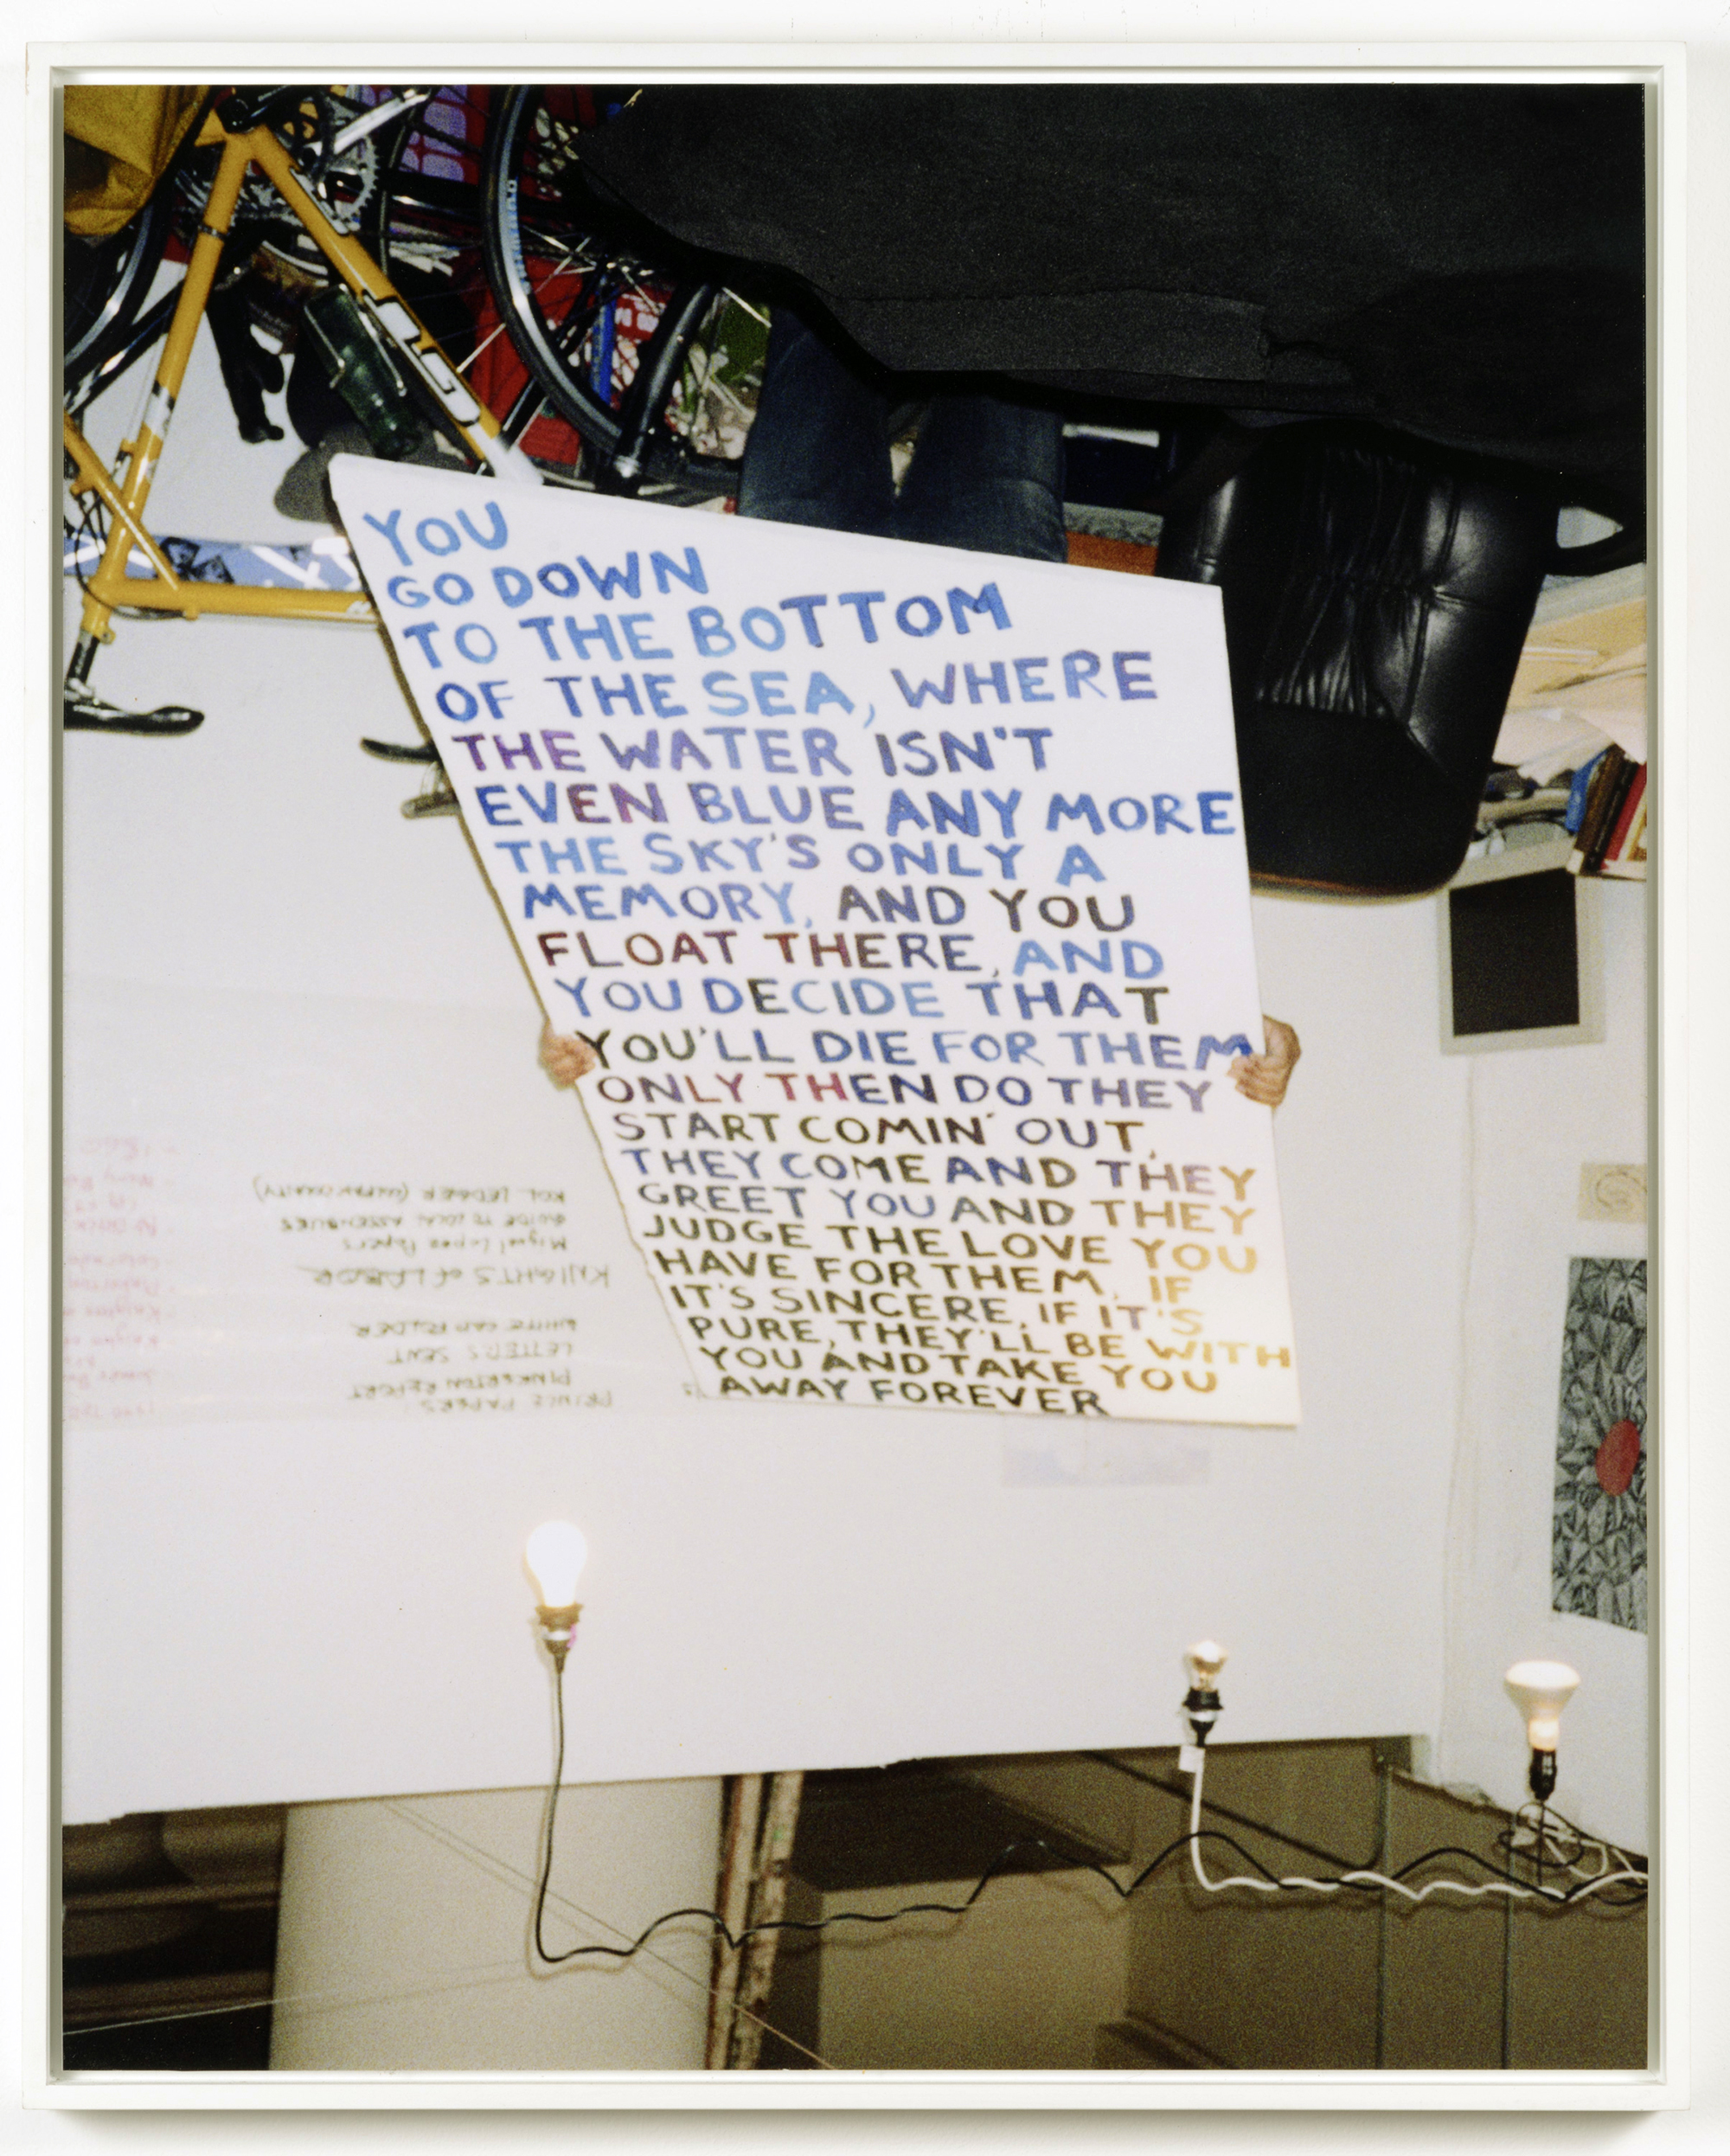 YOU
GO DOWN
TO THE BOTTOM
OF THE SEA, WHERE
THE WATER ISN'T
EVEN BLUE ANY MORE
THE SKY'S ONLY A
MEMORY, AND YOU
FLOAT THERE, AND
YOU DECIDE THAT
YOU'LL DIE FOR THEM
ONLY THEN DO THEY
START COMIN' OUT,
THEY COME AND THEY
GREET YOU AND THEY
JUDGE THE LOVE YOU
HAVE FOR THEM. IF
IT'S SINCERE, IF IT'S
PURE, THEY'LL BE WITH
YOU AND TAKE YOU
AWAY FOREVER
PRINCE PAPERS
PINKERTON REPORT
LETTERS SENT
WHITE CAP FOLDER
KNIGHTS of LABOR
Miguel Lopez Papers
GUIDE TO LOCAL ASSEMBLIES
KOL LEDGER